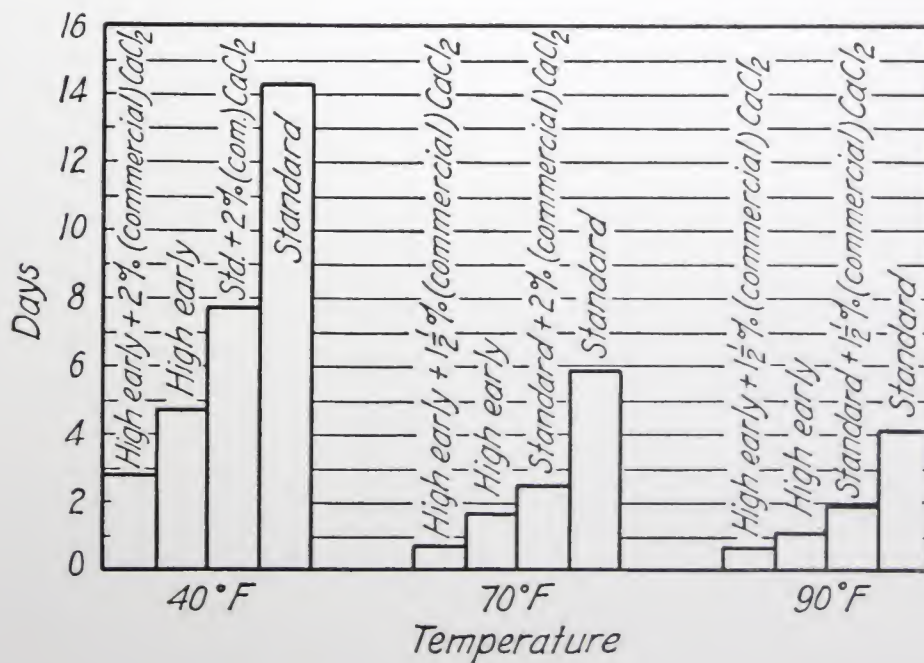 16
14
12
10
8
6
4
2
0
Days
High early + 2% (commercial) CaCl₂
High early
Std. + 2% (com.) CaCl₂
Standard
High early + 1½% (commercial) CaCl₂
High early
Standard + 2% (commercial) CaCl₂
Standard
High early + 1½% (commercial) CaCl₂
High early
Standard + 1½% (commercial) CaCl₂
Standard
40°F
70°F
90°F
Temperature